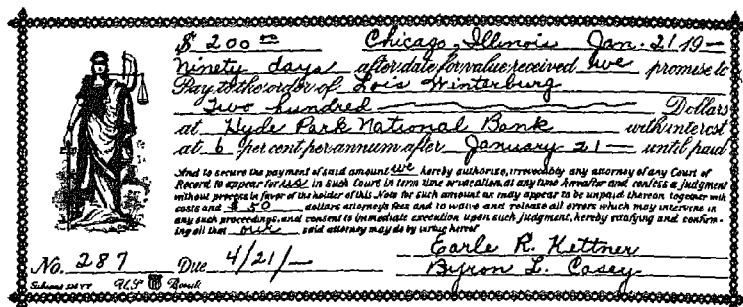 $ 200 00 Chicago, Illinois Jan. 21 19—
Ninety days after date for value received we promise to
Pay to the order of Lois Winterburg
Two hundred Dollars
at Hyde Park National Bank with interest
at 6 per cent per annum after January 21— until paid
And to secure the payment of said amount we hereby authorize, irrevocably any attorney of any Court of
Record to appear for us in such Court in term time or vacation, at any time hereafter and confess a judgment
without process in favor of the holder of this Note for such amount as may appear to be unpaid thereon together with
costs and $50 dollars attorney's fees and to waive and release all errors which may intervene in
any such proceedings, and consent to immediate execution upon such judgment, hereby ratifying and confirm-
ing all that our said attorney may do by virtue hereof
Earle R. Hettner
No. 287 Due 4/21/— Byron L. Casey
U.S. Bank